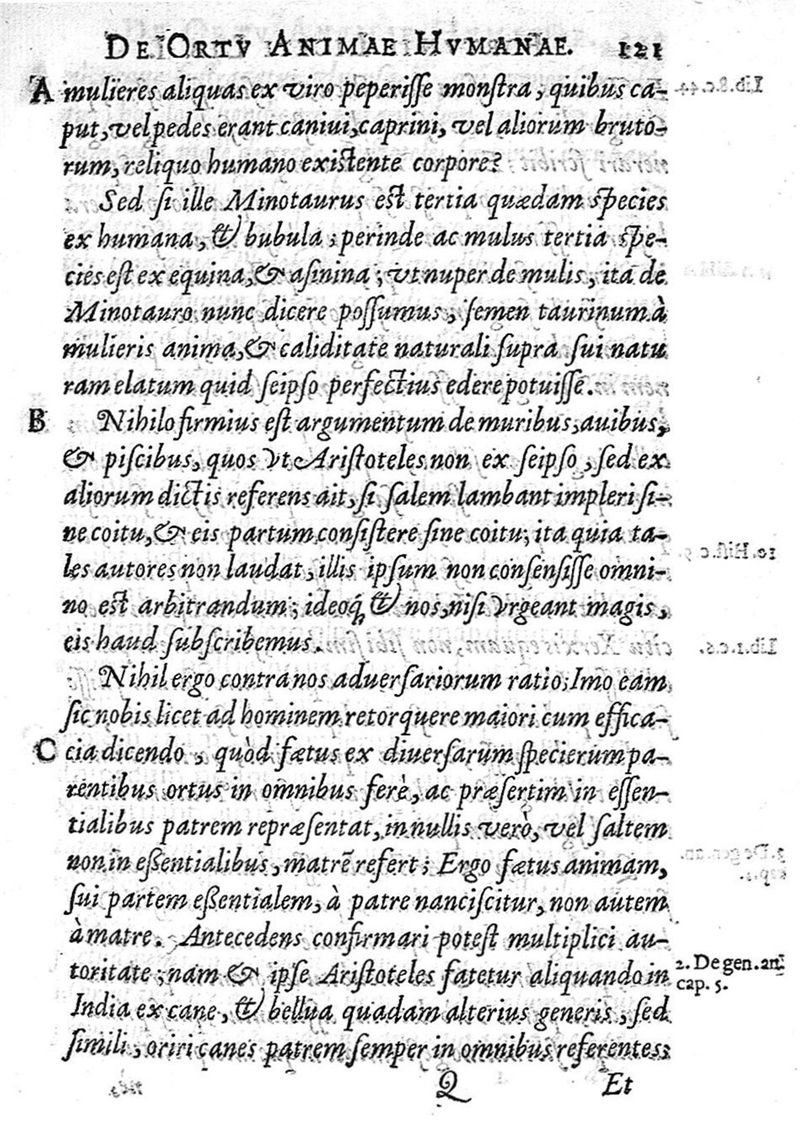 DE ORTV ANIMAE HVMANAE. 121
A mulieres aliquas ex viro peperiſſe monſtra, quibus ca-
put, vel pedes erant caniui, caprini, vel aliorum bruto-
rum, reliquo humano exiſtente corpore?
Sed ſi ille Minotaurus eſt tertia quædam ſpecies
ex humana, & bubula; perinde ac mulus tertia ſpe-
cies eſt ex equina, & aſinina; vt nuper de mulis, ita de
Minotauro nunc dicere poſſumus, ſemen taurinum à
mulieris anima, & caliditate naturali ſupra ſui natu
ram elatum quid ſeipſo perfectius edere potuiſſe.
B Nihilo firmius eſt argumentum de muribus, auibus,
& piſcibus, quos vt Ariſtoteles non ex ſeipſo, ſed ex
aliorum dictis referens ait, ſi ſalem lambant impleri ſi-
ne coitu, & eis partum conſiſtere ſine coitu; ita quia ta-
les autores non laudat, illis ipſum non conſenſiſſe omni-
no eſt arbitrandum; ideoq́ & nos, niſi vrgeant magis,
eis haud ſubſcribemus.
Nihil ergo contra nos aduerſariorum ratio; Imo eam
ſic nobis licet ad hominem retorquere maiori cum effica-
C cia dicendo, quòd fætus ex diuerſarum ſpecierum pa-
rentibus ortus in omnibus ferè, ac præſertim in eſſen-
tialibus patrem repræſentat, in nullis verò, vel ſaltem
non in eßentialibus, matrē refert; Ergo fætus animam,
ſui partem eßentialem, à patre nanciſcitur, non autem
à matre. Antecedens confirmari poteſt multiplici au-
toritate; nam & ipſe Ariſtoteles fatetur aliquando in
2. De gen. an.
cap. 5.
India ex cane, & bellua quadam alterius generis, ſed
ſimili, oriri canes patrem ſemper in omnibus referentes;
Q Et